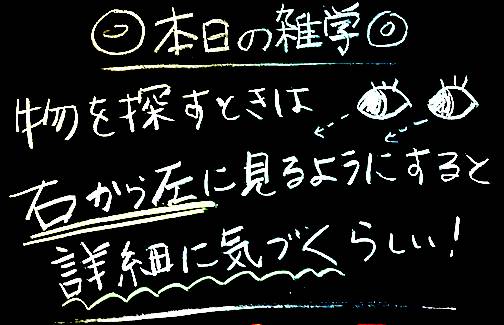 ◎本日の雑学◎
物を探すときは
右から左に見るようにすると
詳細に気づくらしい!